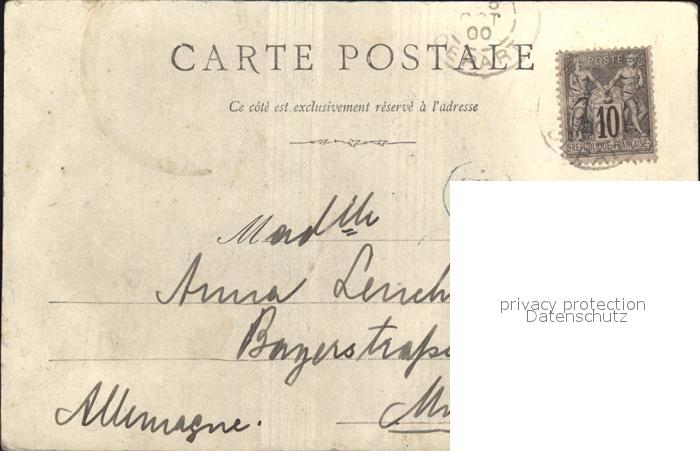 OCT
00
DEPART
CARTE POSTALE
POSTE
10
REPUBLIQUE FRANÇAISE
Ce côté est exclusivement réservé à l'adresse
Madlle
Anna Lerch
privacy protection
Datenschutz
Bayerstraße
Allemagne.